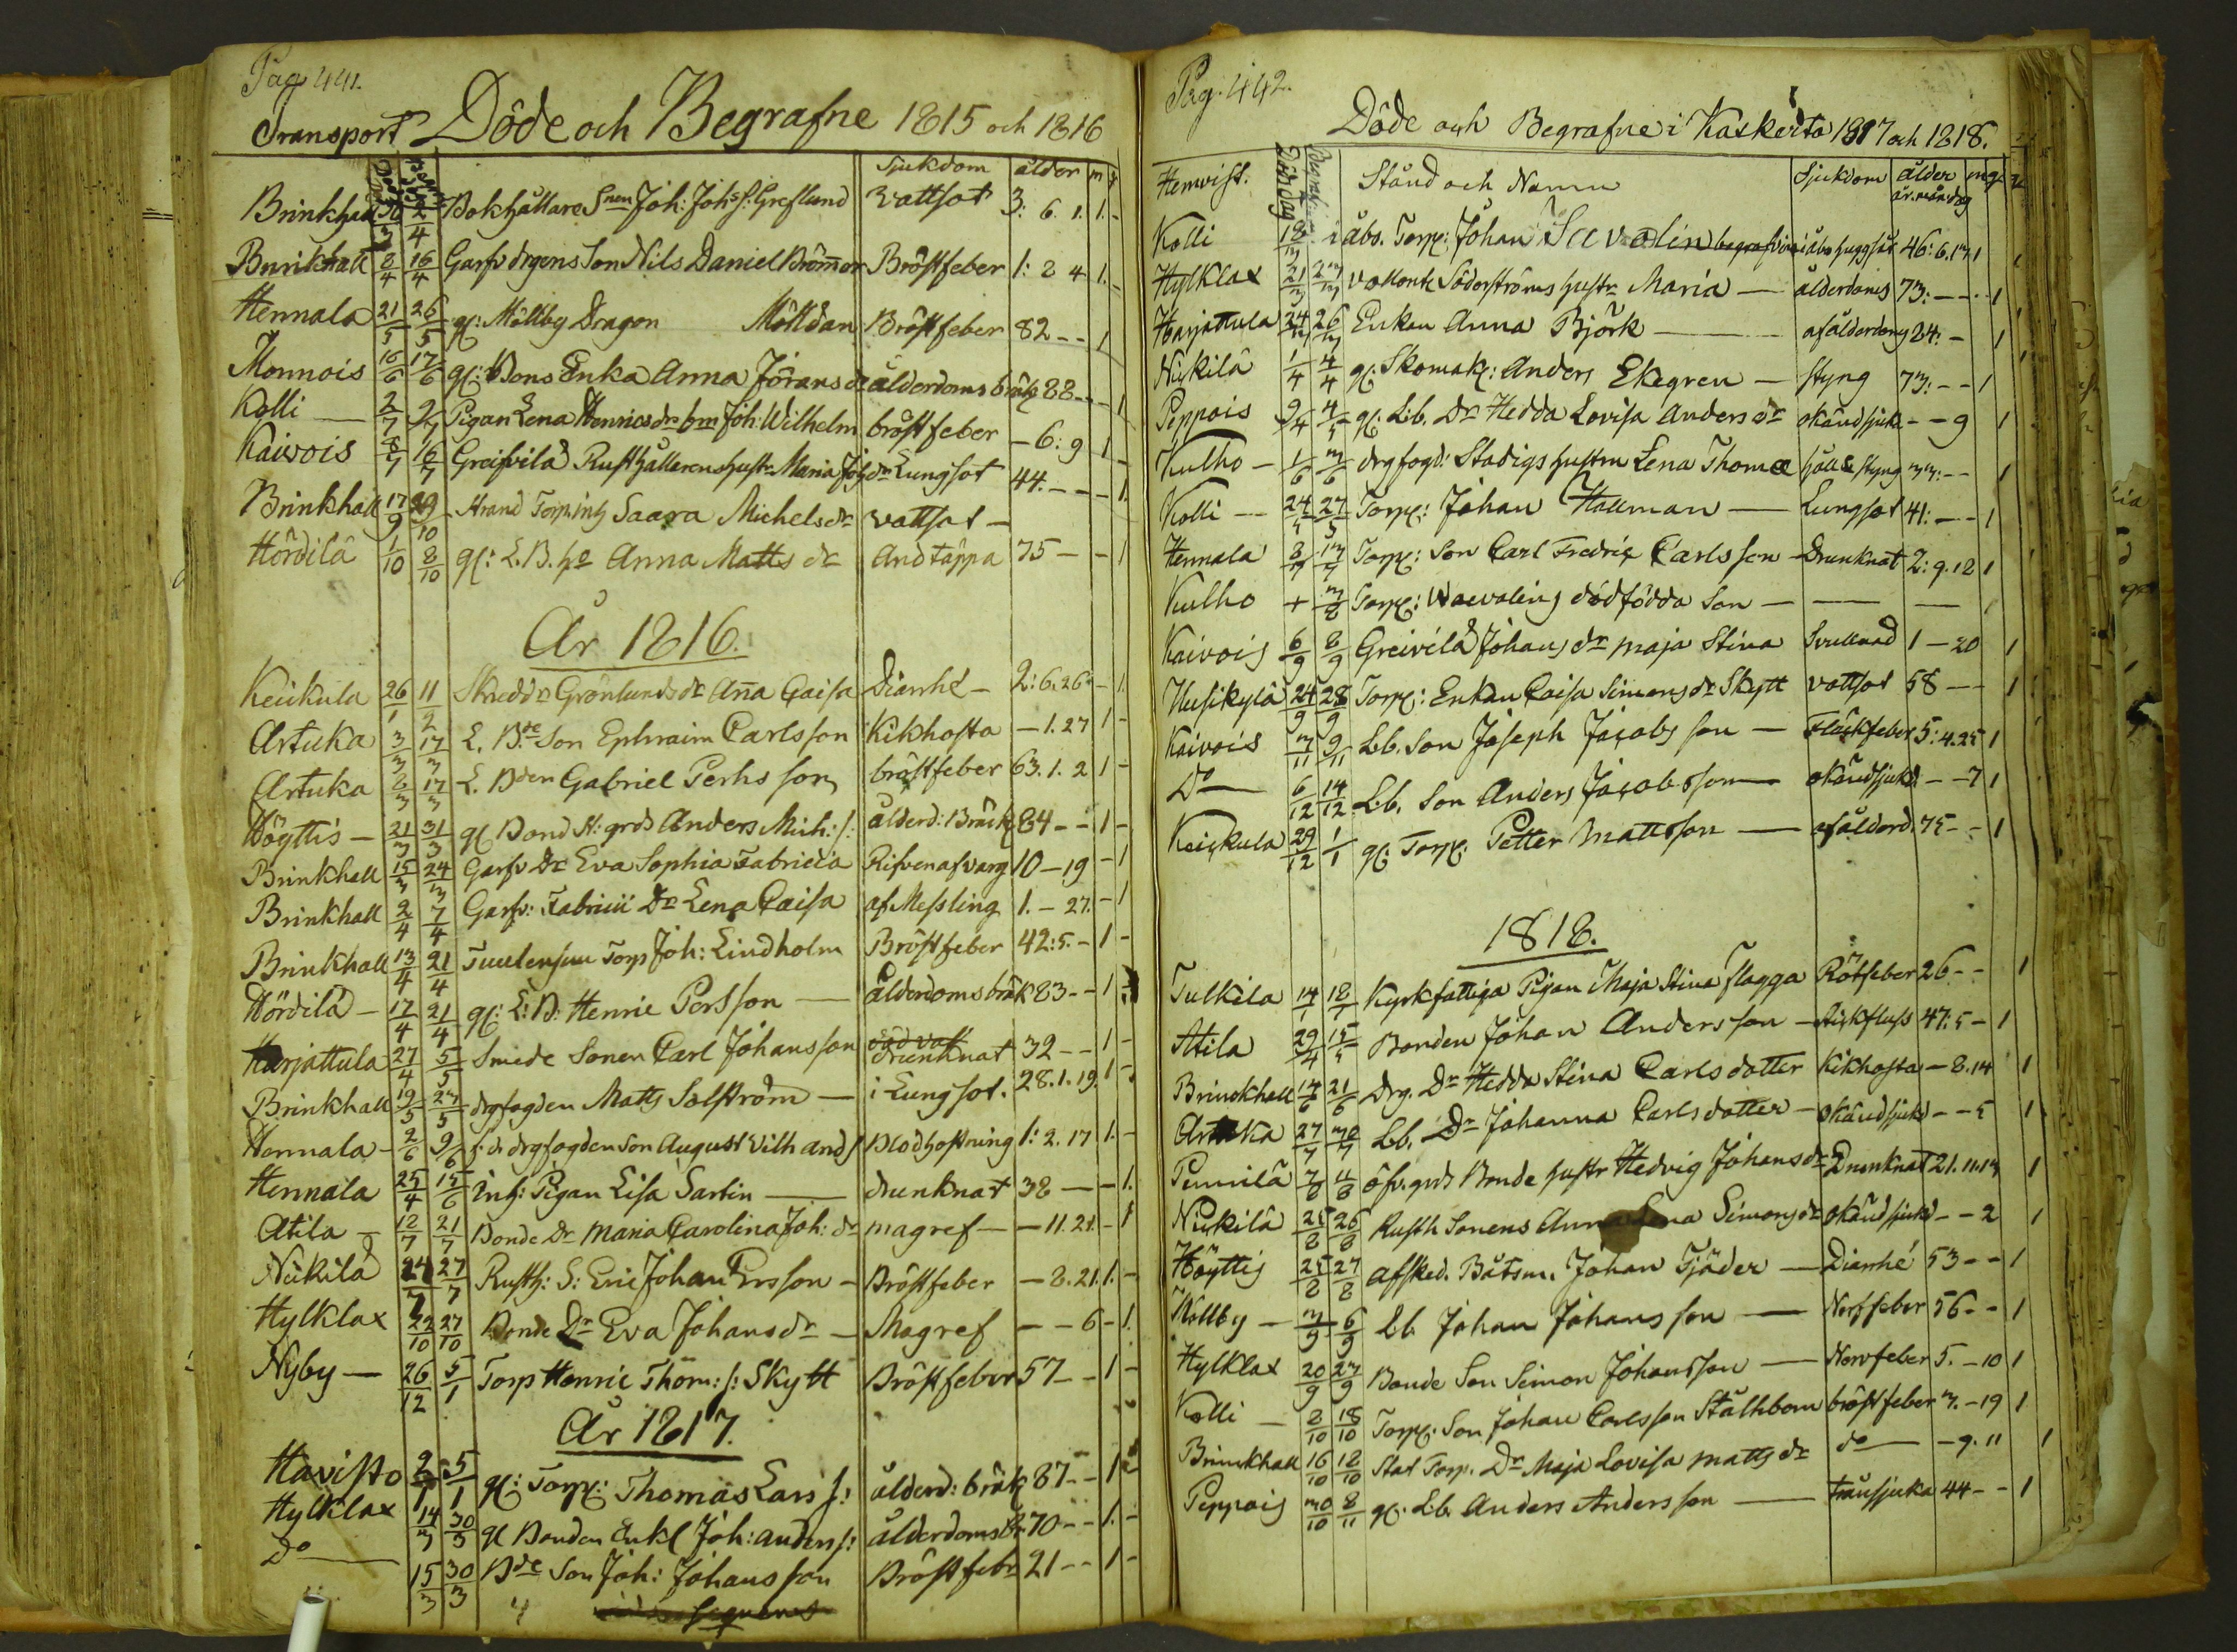 Pag 441.
Transport Döde och Begrafne 1815 och 1816
Sjukdom ålder m
Brinkhall 30/3 2/4 Bokhållare Joh: Johs f: Greflund vattsot 3: 6. 1. 1. -
Brinkhall 8/4 16/4 Garfv drgens Son Nils Daniel Brömer Bröstfeber 1: 2 4 1. -
Hennala 21/5 26/5 gl: Möllby Dragon Mölldan Bröstfeber 82 - - 1
Monnois 16/6 17/6 gl: Bons Enka Anna Jörans dr ålderdoms bräk 88 - - - 1
Kolli 2/7 9/7 Pigan Lena Henricsdr Joh: Wilhelm bröstfeber - 6: 9 1
Kaivois 8/7 16/7 Greifvilä Rusthållerens hustr Maria Joh dr Lungsot 44. - - - 1.
Brinkhall 17/9 Strand Torp inh Saara Michelsdr vattsot -
Hördilä 1/10 8/10 gl: L. B. ho Anna Matts dr Andtäppa 75 - - 1
År 1816.
Keickula 26/1 11/2 Skreddr Grönlunds dr Aña Caisa Diarrhé - 2: 6. 26 - 1.
Artuka 3/3 17/3 L. Bde Son Ephraim Carlsson Kikhosta - 1. 27 1 -
Artuka 2/3 17/3 L. Bden Gabriel Perhs son bröstfeber 63. 1. 2 1 -
Höyttis - 21/3 31/3 gl Bond N: grds Anders Mich: f: ålderd: Bräck 84 - - 1 -
Brinkhall 15/3 24/3 Garfv Dr Eva Sophia Fabricia Rifven af varg 10 - 19 - 1
Brinkhall 2/4 7/4 Garfv: Fabricii Dr Lena Caisa af Messling 1. - 27. - 1
Brinkhall 13/4 21/4 Torp Joh: Lindholm Bröstfeber 42: 5. - 1 -
Hördilä - 17/4 21/4 gl: L: B: Henric Persson ålderdoms bräk 83 - - 1
Harjattula 27/4 5/5 Smede Sonen Carl Johansson drunknat 32 - - 1 -
Brinkhall 19/5 27/5 drgfogden Matts Salström - i Lungsot. 28. 1. 19. 1 -
Hennala - 2/6 9/6 f. d. drgfogden son August Vilh and f Blodhostning 1: 2. 17 1. -
Hennala 25/4 15/6 Inh: Pigan Lisa Sarlin drunknat 38 - - 1.
Atila - 12/7 21/7 Bonde Dr Maria Carolina Joh: dr magref - - 11. 21. - 1
Nickilä 24/7 27/7 Rusth: S: Eric Johan Ersson - Bröstfeber - 8. 21. 1. -
Hylklax 22/10 27/10 Bonde Dr Eva Johans dr - Magref - - 6 - 1.
Nyby - 26/12 5/1 Torp Henric Thom: f: Skytt Bröstfeber 57 - - 1 -
År 1817.
Havisto 2/1 5/1 gl: Torp: Thomas Lars f: ålderd: bräk 87 - - 1 -
Hylklax 14/3 30/3 gl Bonden Enkl Joh: anders f: ålderdoms br 70 - - 1. -
Do 15/3 30/3 Bde Son Joh: Johansson Bröstfebr 21 - - 1 -
Pag. 442.
Döde och Begrafne i Kaskerto 1817 och 1818.
Hemvist. Död dag Begrafn Stånd och Namn Sjukdom ålder år. mån. dag m q
Kolli 18/3 i åbo. Torp: Johan Savalin begrafven i åbo huggsår 46: 6. 17 1
Hylklax 21/3 27/3 vollont: Söderströms hustr Maria - ålderdoms 73: - - - 1
Harjattula 24/3 26/3 Enkan Anna Björk - af ålderdom 84: - 1
Nickilä 1/4 4/4 gl: Skomak: Anders Ekegren - styng 73: - - 1
Peppois 9/4 4/5 gl: L:b. Dr Hedda Lovisa Anders dr okänd sjuk - - 9 1
Kulho - 1/6 3/6 drgfogd: Stadigs hustru Lena Thomæ håll & styng 33: - - 1
Kolli - 24/5 27/5 Torp: Johan Hallman - Lungsot 41: - - 1
Hennala 8/7 13/7 Torp: Son Carl Fredric Carlsson - Drunknat 2: 9. 12 1
Kulho + 3/8 Torp: Waevalins dödfödda Son - - - 1
Kaivois 6/9 8/9 Greivilä Johans dr Maja Stina Svullnad 1 - 20 1
Husikylä 24/9 28/9 Torp: Enkan Caisa Simons dr Skytt vattsot 58 - - 1
Kaivois 3/11 9/11 L:b. Son Joseph Jacobs son - Fläckfeber 5: 4. 25 1
Do 6/12 14/12 L:b. Son Anders Jacobsson okänd sjukd - - 7 1
Keickula 29/12 1/1 gl: Torp: Petter Mattsson - af ålderd. 75 - - 1
1818.
Tulkila 14/1 18/1 Kyrkfattiga Pigan Maja Stina Flagga Rötfeber 26 - - 1
Atila 29/4 15/5 Bonden Johan Andersson - Stickfluss 47: 5 - 1
Brinckhall 14/6 21/6 Drg. Dr Hedda Stina Carlsdotter Kikhosta - 8. 14 1
Artuka 27/7 30/7 L:b. Dr Johanna Carlsdotter - okänd sjukd - - 5 1
Pennilä 7/8 11/8 öfv. grds Bonde hustr Hedvig Johans dr Drunknat 21. 11. 14 1
Nickilä 25/8 26/8 Rusth Sonens Anna Lena Simons dr okänd sjukd - - 2 1
Höyttis 25/8 27/8 Afsked. Båtsm. Johan Tjäder - Diarrhé 53 - - 1
Möllby - 3/9 6/9 L:b. Johan Johansson - Nerffeber 56 - - 1
Hylklax 20/9 27/9 Bonde Son Simon Johansson - Nervfeber 5. - 10 1
Kolli - 2/10 18/10 Torp: Son Johan Carlsson Stålhbom bröstfeber 3. - 19 1
Brinckhall 16/10 18/10 Stat Torp. Dr Maja Lovisa Matts dr do - 9. 11 1
Peppois 30/10 8/11 gl. L:b. Anders Andersson - Tråusjuka 44 - - 1